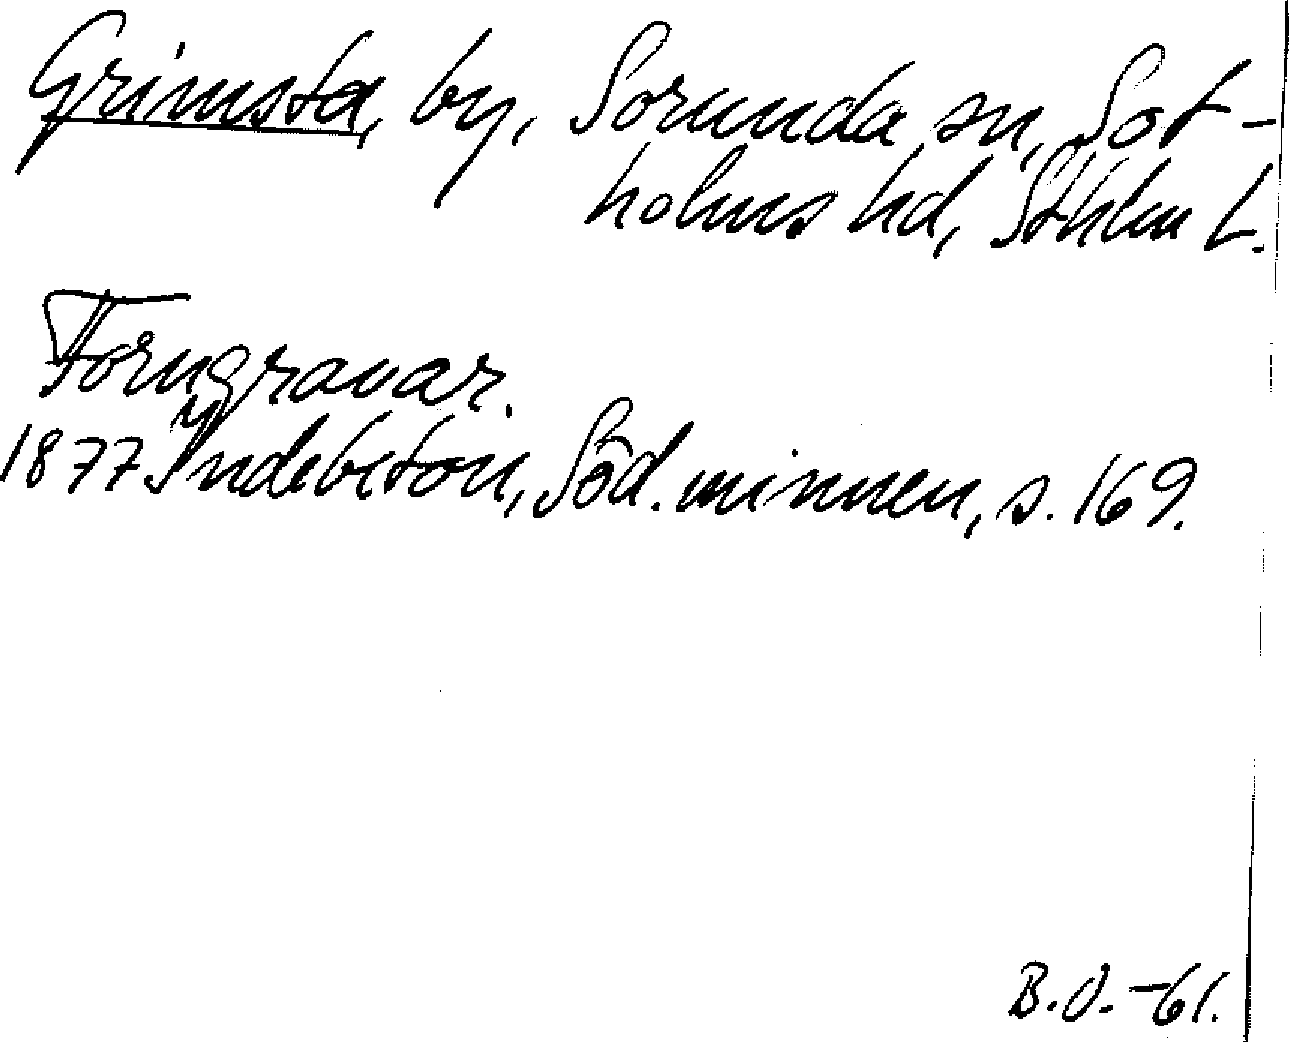 Grimsta, by, Sorunda sn, Sot-
holms hd, Sthlm L.
Forngravar.
1877 Yndebeton, Söd. minnen, s. 169.
B.O. -61.